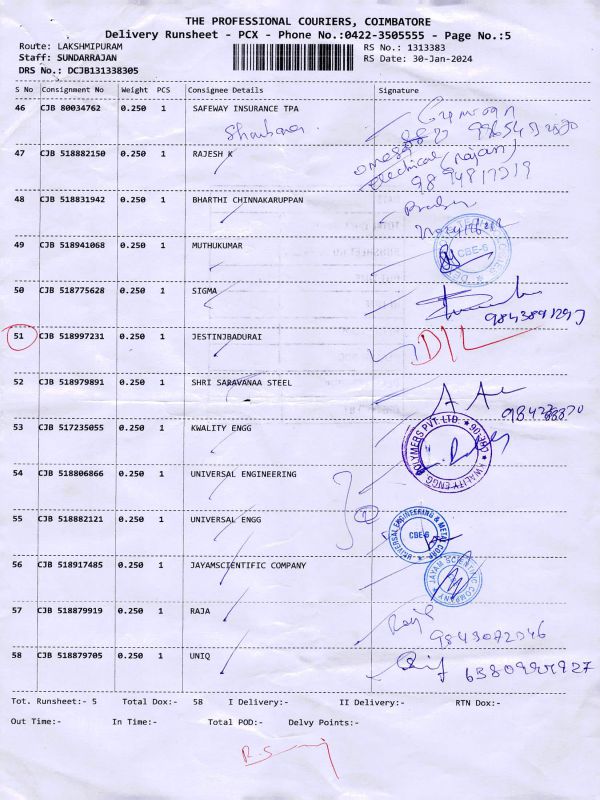 THE PROFESSIONAL COURIERS, COIMBATORE
Delivery Runsheet - PCX - Phone No.:0422-3505555 - Page No.:5
Route: LAKSHMIPURAM RS No.: 1313383
Staff: SUNDARRAJAN RS Date: 30-Jan-2024
DRS No.: DCJB131338305
S No Consignment No Weight PCS Consignee Details Signature
46 CJB 80034762 0.250 1 SAFEWAY INSURANCE TPA
47 CJB 518882150 0.250 1 RAJESH K
Electrical (Rajan)
9894817219
48 CJB 518831942 0.250 1 BHARTHI CHINNAKARUPPAN
49 CJB 518941068 0.250 1 MUTHUKUMAR
CBE-6
50 CJB 518775628 0.250 1 SIGMA
51 CJB 518997231 0.250 1 JESTINJBADURAI
D/L
52 CJB 518979891 0.250 1 SHRI SARAVANAA STEEL
53 CJB 517235055 0.250 1 KWALITY ENGG
POLYMERS PVT LTD. CBE-06 KWALITY ENGG
54 CJB 518806866 0.250 1 UNIVERSAL ENGINEERING
2
55 CJB 518882121 0.250 1 UNIVERSAL ENGG
UNIVERSAL ENGINEERING & METAL CORP. CBE-6
56 CJB 518917485 0.250 1 JAYAMSCIENTIFIC COMPANY
JAYAM SCIENTIFIC COMPANY
57 CJB 518879919 0.250 1 RAJA
9843072046
58 CJB 518879705 0.250 1 UNIQ
Tot. Runsheet:- 5 Total Dox:- 58 I Delivery:- II Delivery:- RTN Dox:-
Out Time:- In Time:- Total POD:- Delvy Points:-